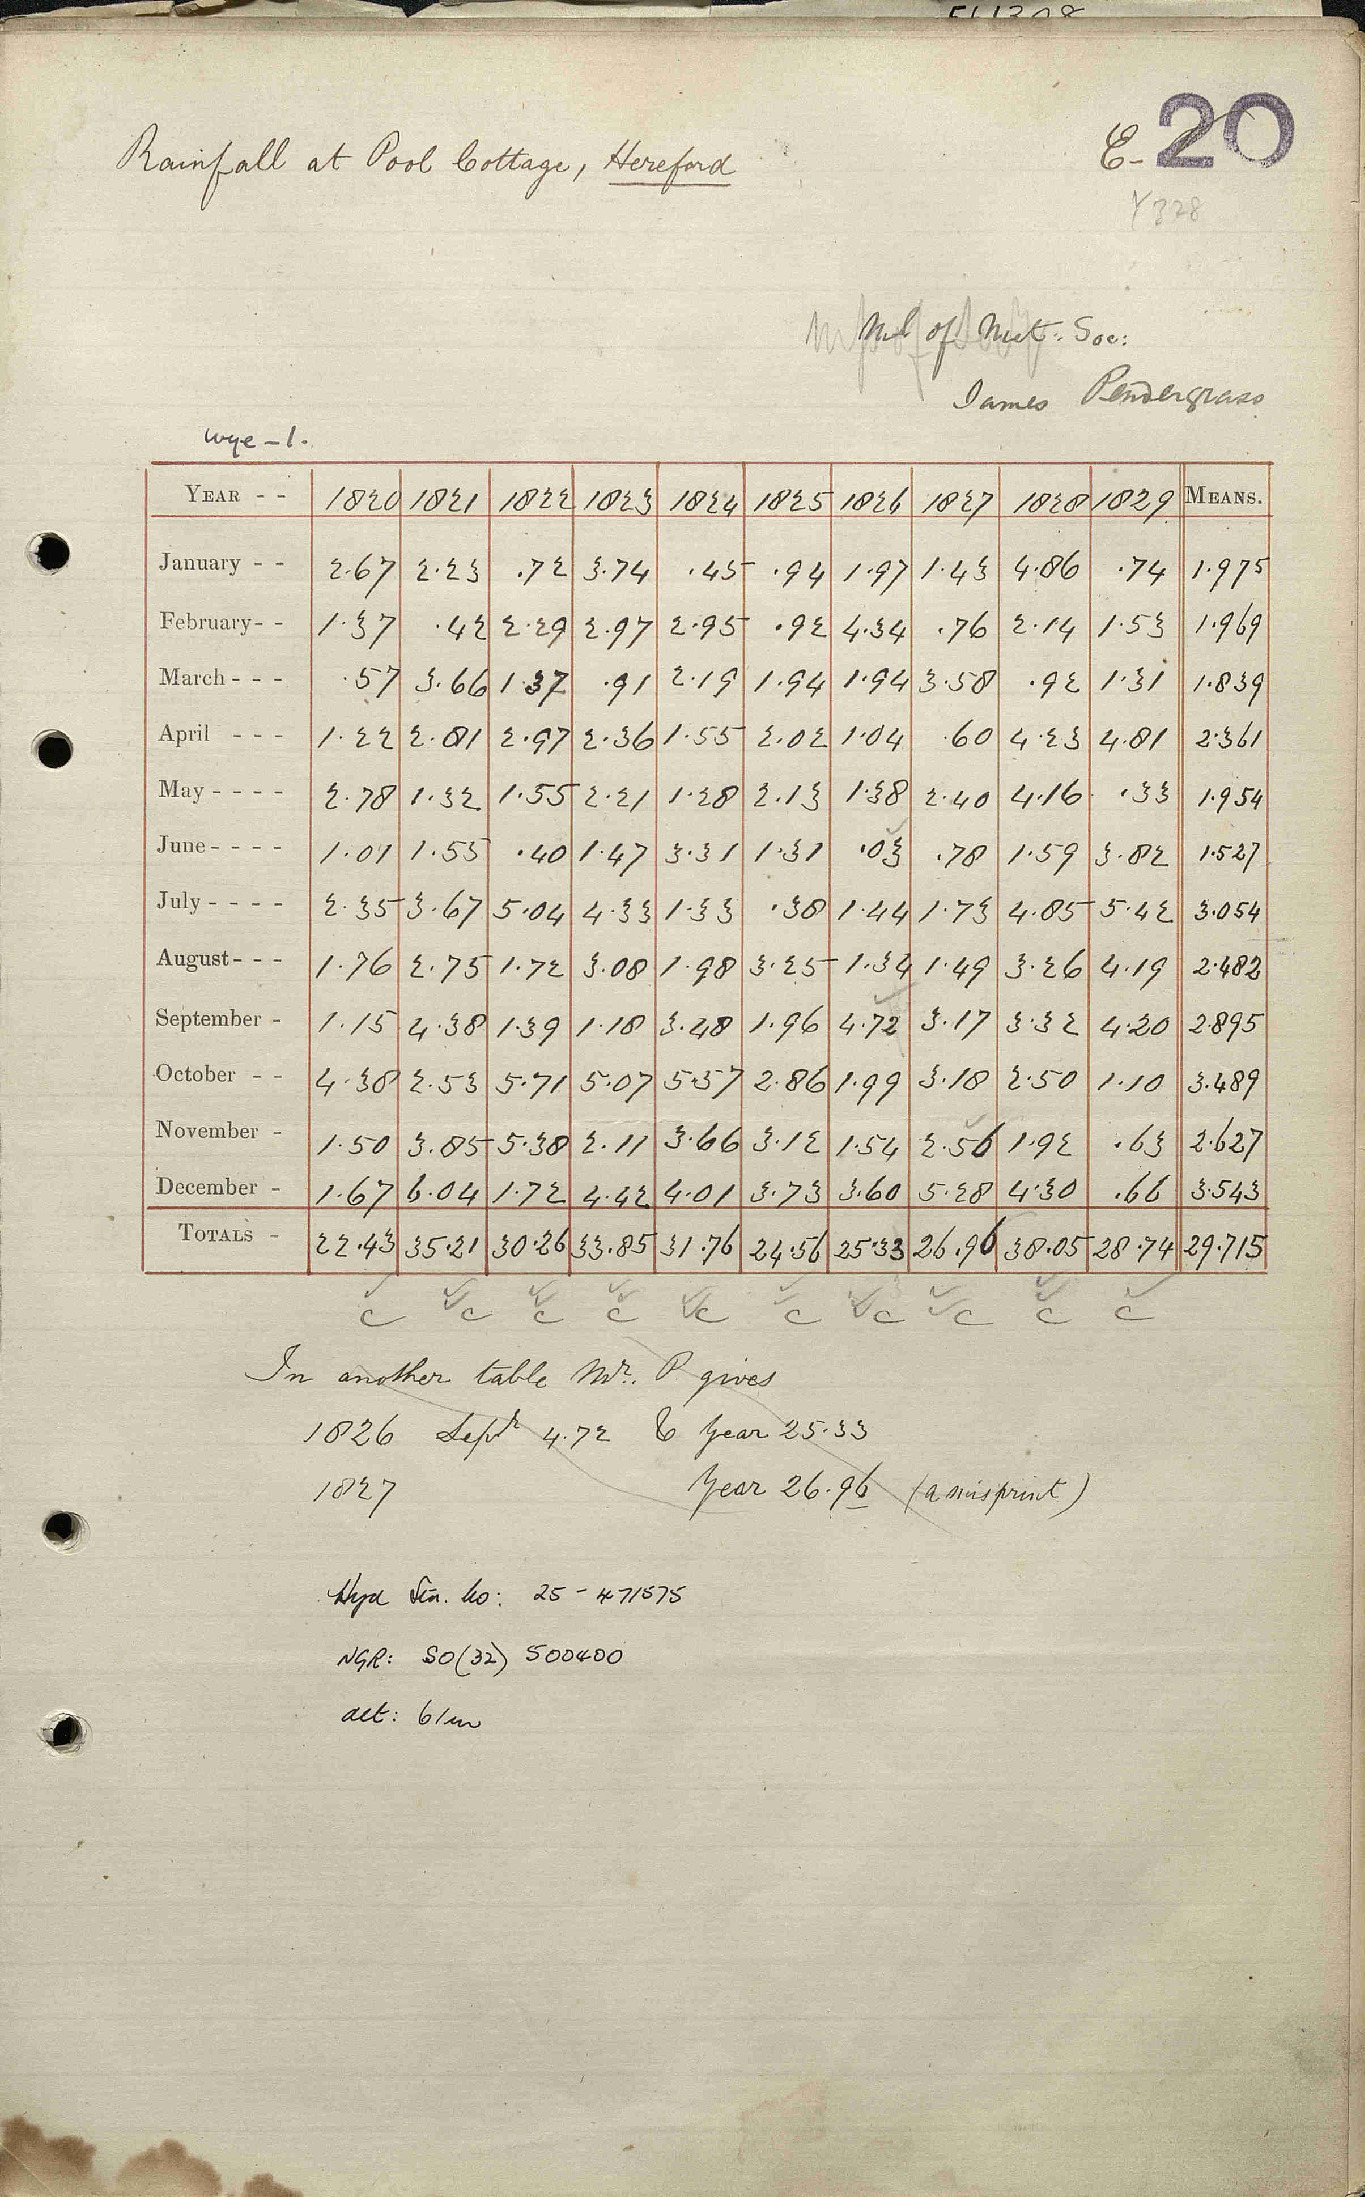 511308
E-20
Rainfall at Pool Cottage, Hereford
Y328
of Met. Soc:
James Pendergrass
Wye - 1.
YEAR - - 1820 1821 1822 1823 1824 1825 1826 1827 1828 1829 MEANS.
January - - 2.67 2.23 .72 3.74 .45 .94 1.97 1.43 4.86 .74 1.975
February - - 1.37 .42 2.29 2.97 2.95 .92 4.34 .76 2.14 1.53 1.969
March - - - .57 3.66 1.37 .91 2.19 1.94 1.94 3.58 .92 1.31 1.839
April - - - 1.22 2.81 2.97 2.36 1.55 2.02 1.04 .60 4.23 4.81 2.361
May - - - - 2.78 1.32 1.55 2.21 1.28 2.13 1.38 2.40 4.16 .33 1.954
June - - - - 1.01 1.55 .40 1.47 3.31 1.31 .03 .78 1.59 3.82 1.527
July - - - - 2.35 3.67 5.04 4.33 1.33 .38 1.44 1.73 4.85 5.42 3.054
August - - - 1.76 2.75 1.72 3.08 1.98 3.25 1.34 1.49 3.26 4.19 2.482
September - 1.15 4.38 1.39 1.18 3.48 1.96 4.72 3.17 3.32 4.20 2.895
October - - 4.38 2.53 5.71 5.07 5.57 2.86 1.99 3.18 2.50 1.10 3.489
November - 1.50 3.85 5.38 2.11 3.66 3.12 1.54 2.56 1.92 .63 2.627
December - 1.67 6.04 1.72 4.42 4.01 3.73 3.60 5.28 4.30 .66 3.543
TOTALS - 22.43 35.21 30.26 33.85 31.76 24.56 25.33 26.96 38.05 28.74 29.715
c c c c c c c c c c
In another table Mr. P. gives
1826 Septr 4.72 & Year 25.33
1827 Year 26.96 (a misprint)
Hyd Stn. No: 25 - 471575
NGR: SO(32) 500400
alt: 61m